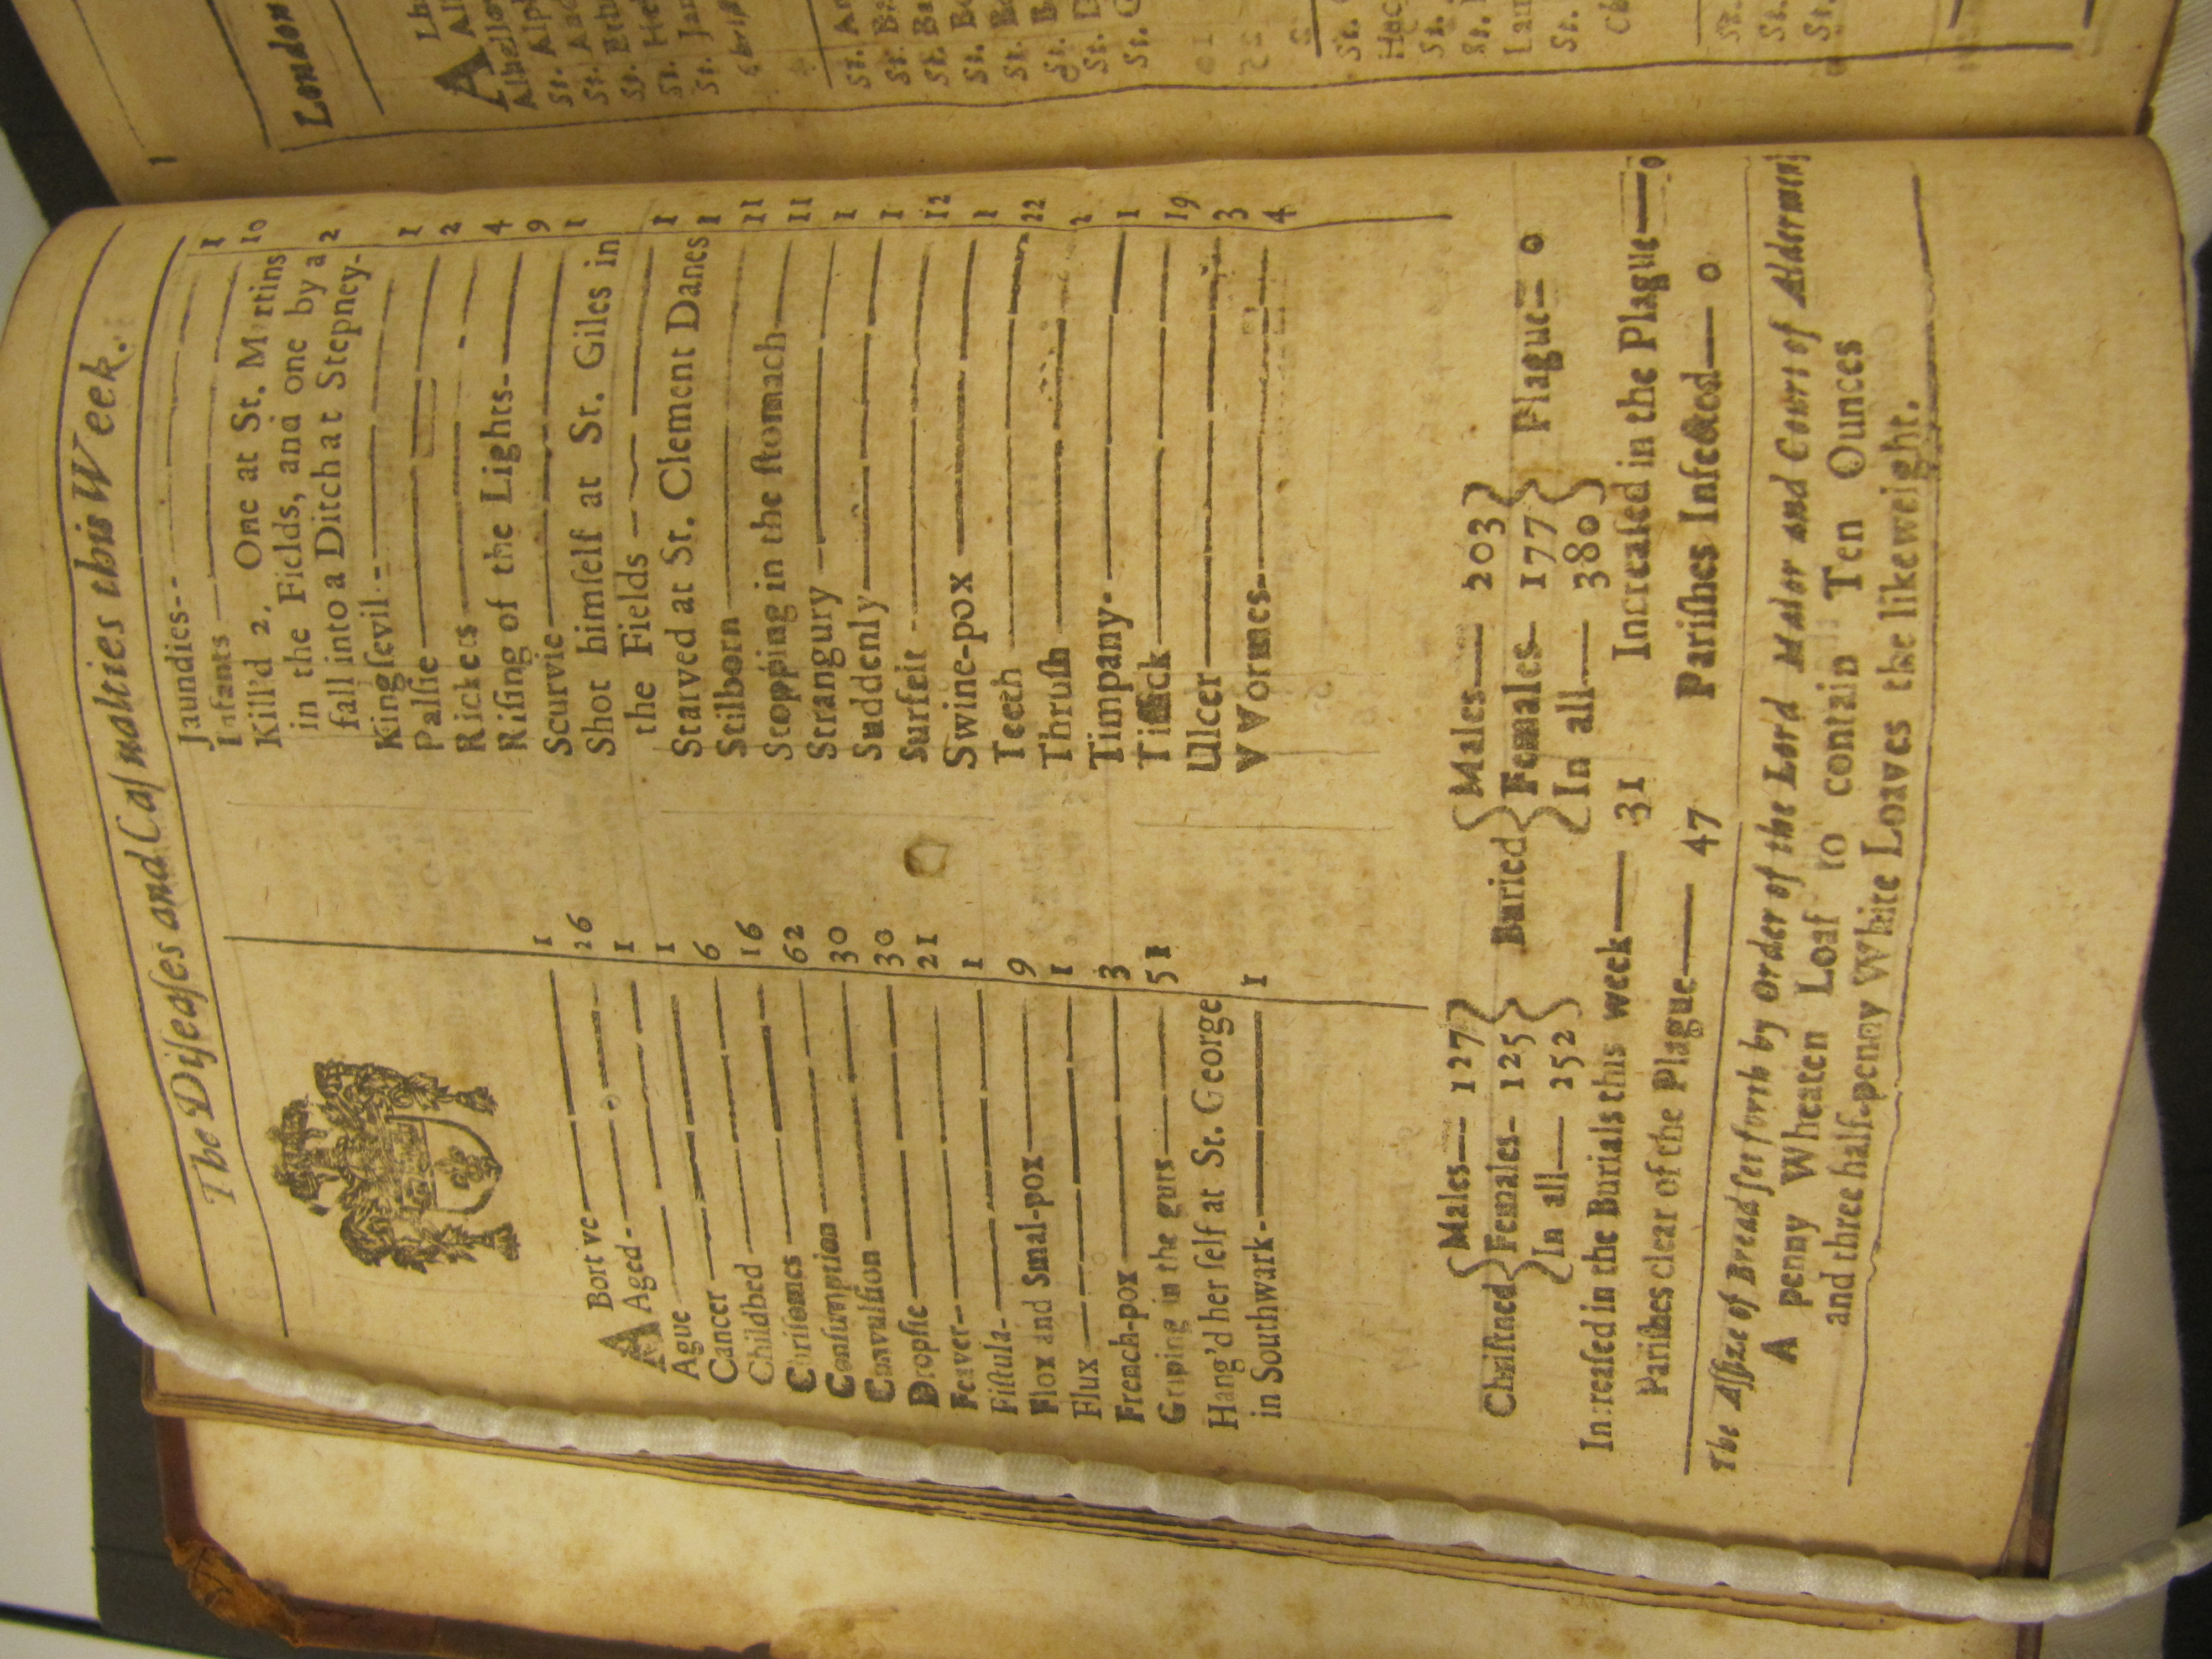 The Diſeaſes and Caſualties this Week.
ABortive 1
Aged 26
Ague 1
Cancer 1
Childbed 6
Chriſomes 16
Conſumption 62
Convulſion 30
Dropſie 30
Feaver 21
Fiſtula 1
Flox and Smal-pox 9
Flux 1
French-pox 3
Griping in the guts 51
Hang'd her ſelf at St. George
in Southwark 1
Jaundies 1
Infants 10
Kill'd 2. One at St. Martins
in the Fields, and one by a
fall into a Ditch at Stepney 2
Kingſevil 1
Palſie 2
Rickets 4
Riſing of the Lights 9
Scurvie 1
Shot himſelf at St. Giles in
the Fields 1
Starved at St. Clement Danes 1
Stilborn 11
Stopping in the ſtomach 11
Strangury 1
Suddenly 1
Surfeit 12
Swine-pox 1
Teeth 22
Thruſh 2
Timpany 1
Tiſſick 19
Ulcer 3
VVormes 4
Chriſtned { Males 127 Females 125 In all 252 } Buried { Males 203 Females 177 In all 380 } Plague 0
Increaſed in the Burials this week 31 Increaſed in the Plague 0
Pariſhes clear of the Plague 47 Pariſhes Infected 0
The Aſſize of Bread ſet forth by Order of the Lord Maior and Court of Aldermen;
A penny Wheaten Loaf to contain Ten Ounces
and three half-penny White Loaves the like weight.
London
St. Alp
St. And
St. Jam